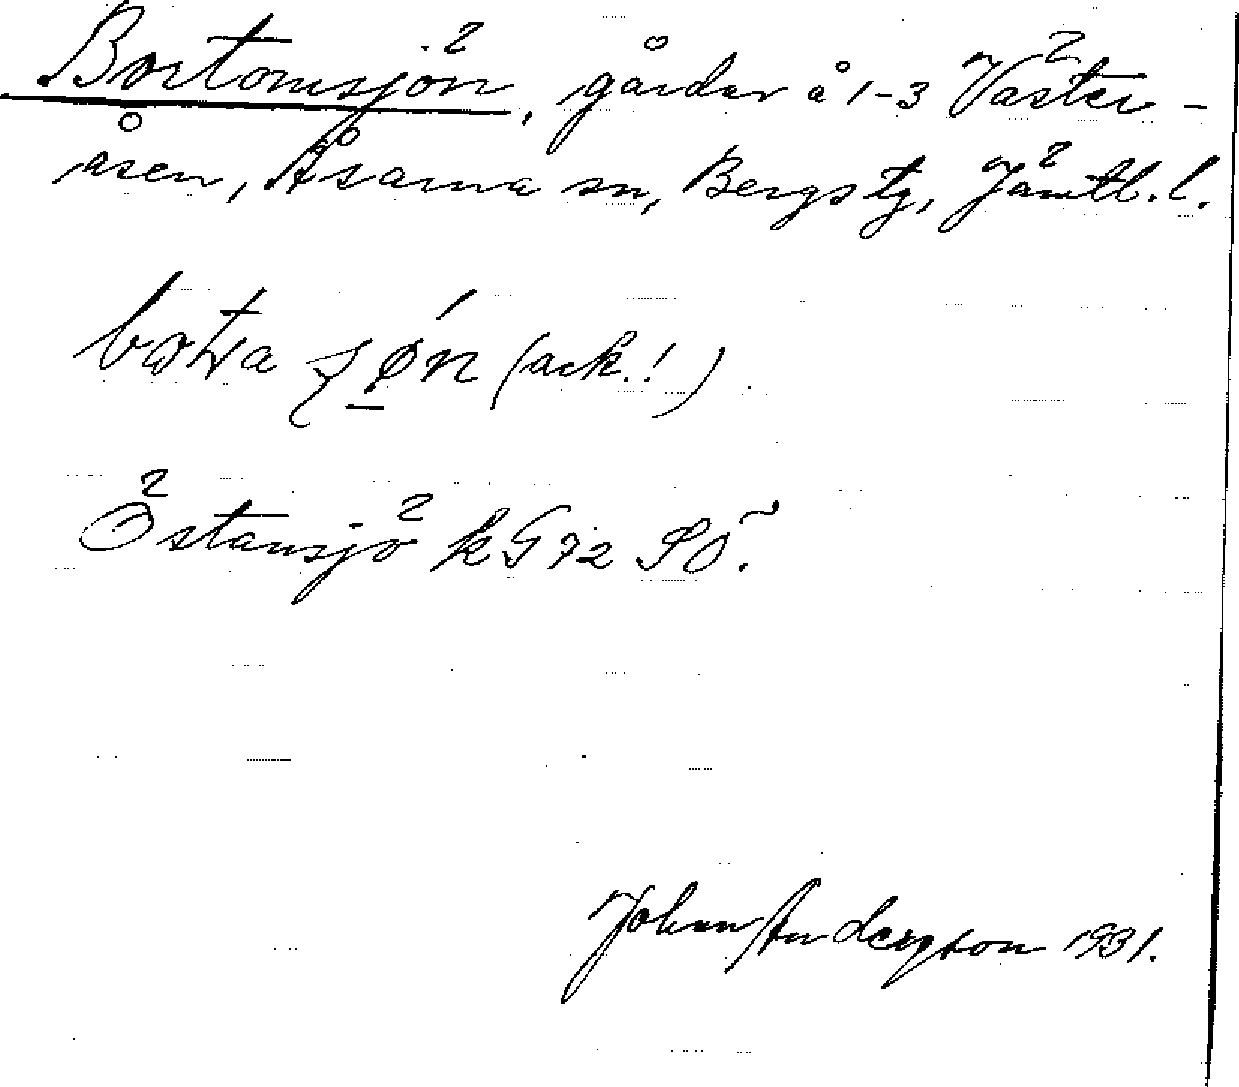 Bortomsjön, gårdar å 1-3 Väster-
åsen, Åsarna sn, Bergs tg, Jämtl. l.
(ack.!)
Östansjö kG72 SÖ.
Johan Andersson 1931.